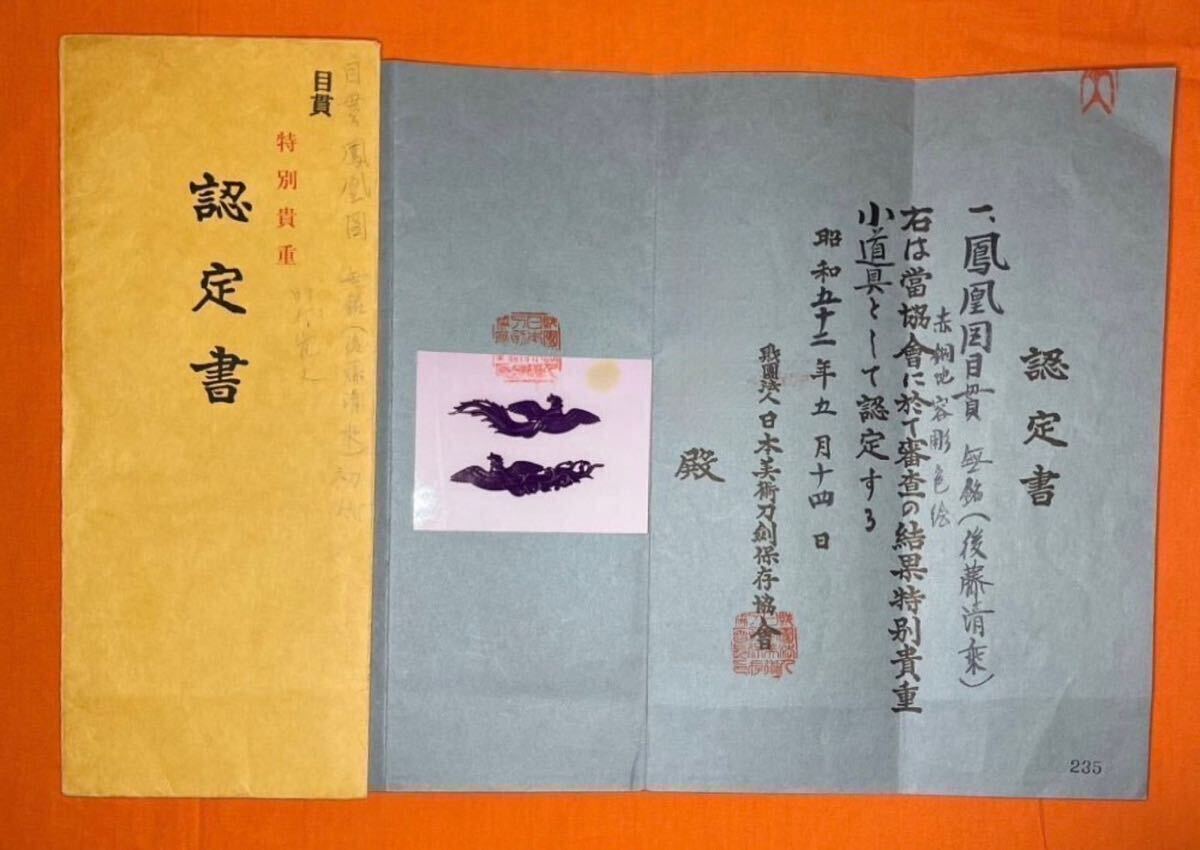 認定書
一、鳳凰図目貫 無銘(後藤清乗)
赤銅地容彫色絵
右は當協會に於て審査の結果特別貴重
小道具として認定する
昭和五十二年五月十四日
財團法人日本美術刀剣保存協會
殿
235
目貫
特別貴重
認定書
目貫 鳳凰図 無銘(後藤清乗)初代